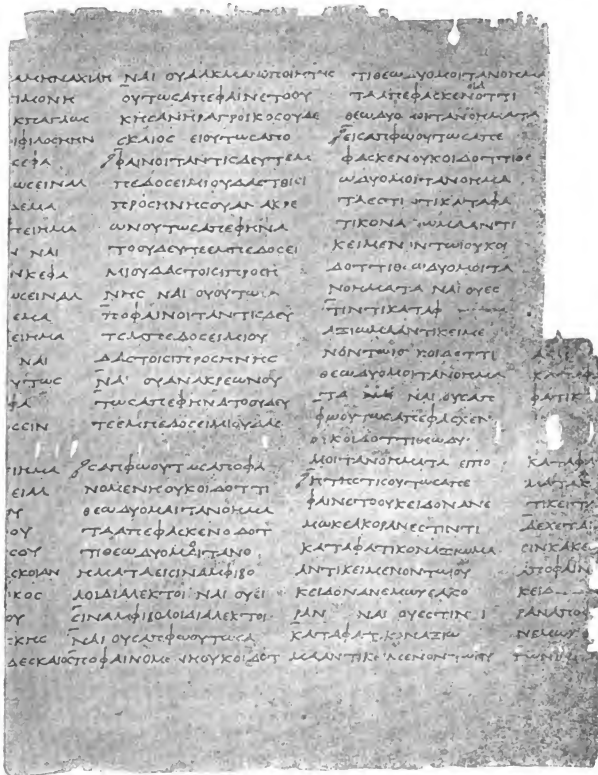 ΙΜΟΝΗ
ΚΠΑΓΛΩC
CΕΦΑ
ΩCΕΙΝΑΙ
ΔΕΜΑ
ΤΕΙΗΜΑ
Ν ΝΑΙ
ΝΚΕΦΑ
ΩCΕΙΝΑΙ
ΕΜΑ
ΕΙΗΜΑ
ΝΑΙ
ΥΤΩC
ΦΑ
ΟCCΙΝ
ΤΙΗΜΑ
ΕΙΑΙ
ΟΥ
CΟΥ
CΚΟΙΑΝ
ΙΚΟC
ΟΥ
CΚΗC
ΔΕCΚΑΙΟC
ΝΑΙ ΟΥΑΛΚΜΑΝΟΠΟΙΗΤΗC
ΟΥΤΩCΑΠΕΦΑΙΝΕΤΟΟΥ
ΚΗCΑΝΗΡΑΓΡΟΙΚΟCΟΥΔΕ
CΚΑΙΟC ΕΙΟΥΤΩCΑΠΟ
ΦΑΙΝΟΙΤΑΝΤΙCΔΕΥΤΕΜ
ΠΕΔΟCΕΙΜΙΟΥΔΑCΤΟΙCΙ
ΠΡΟCΗΝΗCΟΥΑΝΑΚΡΕ
ΩΝΟΥΤΩCΑΠΕΦΗΝΑ
ΤΟΟΥΔΕΥΤΕΜΠΕΔΟCΕΙ
ΜΙΟΥΔΑCΤΟΙCΙΠΡΟCΗ
ΝΗC ΝΑΙ ΟΥΟΥΤΩCΑ
ΠΟΦΑΙΝΟΙΤΑΝΤΙCΔΕΥ
ΤΕΜΠΕΔΟCΕΙΜΙΟΥ
ΔΑCΤΟΙCΙΠΡΟCΗΝΗC
ΝΑΙ ΟΥΑΝΑΚΡΕΩΝΟΥ
ΤΩCΑΠΕΦΗΝΑΤΟΟΥΔΕΥ
ΤΕΕΜΠΕΔΟCΕΙΜΙΟΥΔΑC
CΑΠΦΩΟΥΤΩCΑΠΟΦΑ
ΝΟΜΕΝΗΟΥΚΟΙΔΟΤΤΙ
ΘΕΩΔΥΟΜΟΙΤΑΝΟΗΜΑ
ΤΑΑΠΕΦΑCΚΕΝΟΔΟΤ
ΤΙΘΕΩΔΥΟΜΟΙΤΑΝΟ
ΗΜΑΤΑΕΙCΙΝΑΜΦΙΒΟ
ΛΟΙΔΙΑΛΕΚΤΟΙ ΝΑΙ ΟΥΕΙ
CΙΝΑΜΦΙΒΟΛΟΙΔΙΑΛΕΚΤΟΙ
ΝΑΙ ΟΥCΑΠΦΩΟΥΤΩCΑ
ΠΟΦΑΙΝΟΜΕΝΗΟΥΚΟΙΔΟΤ
ΤΙΘΕΩΔΥΟΜΟΙΤΑΝΟΗΜΑ
ΤΑΑΠΕΦΑCΚΕΝΟΤΤΙ
ΘΕΩΔΥΟΜΟΙΤΑΝΟΗΜΑΤΑ
ΕΙCΑΠΦΩΟΥΤΩCΑΠΕ
ΦΑCΚΕΝΟΥΚΟΙΔΟΤΤΙΘΕ
ΩΔΥΟΜΟΙΤΑΝΟΗΜΑ
ΤΑΕCΤΙ ΤΙΚΑΤΑΦΑ
ΤΙΚΟΝΑΞΙΩΜΑΑΝΤΙ
ΚΕΙΜΕΝΟΝΤΩΙΟΥΚΟΙ
ΔΟΤΤΙΘΕΩΔΥΟΜΟΙΤΑ
ΝΟΗΜΑΤΑ ΝΑΙ ΟΥΕC
ΤΙΝΤΙΚΑΤΑΦ
ΑΞΙΩΜΑΑΝΤΙΚΕΙΜΕ
ΝΟΝΤΩΙΟΥΚΟΙΔΟΤΤΙ
ΘΕΩΔΥΟΜΟΙΤΑΝΟΗΜΑ
ΤΑ ΝΑΙ ΟΥCΑΠ
ΦΩΟΥΤΩCΑΠΕΦΑCΚΕΝ
ΟΥΚΟΙΔΟΤΤΙΘΕΩΔΥ
ΜΟΙΤΑΝΟΗΜΑΤΑ ΕΙΠΟ
ΗΤΗCΤΙCΟΥΤΩCΑΠΕ
ΦΑΙΝΕΤΟΟΥΚΕΙΔΟΝΑΝΕ
ΜΩΚΕΑΚΟΡΑΝΕCΤΙΝΤΙ
ΚΑΤΑΦΑΤΙΚΟΝΑΞΙΩΜΑ
ΑΝΤΙΚΕΙΜΕΝΟΝΤΩΙΟΥ
ΚΕΙΔΟΝΑΝΕΜΩΚΕΑΚΟ
ΡΑΝ ΝΑΙ ΟΥΕCΤΙΝΤΙ
ΚΑΤΑΦΑΤΙΚΟΝΑΞΙΩ
ΜΑΑΝΤΙΚΕΙΜΕΝΟΝΤΩΙΟΥ
ΑΞΙ
ΚΑΤΑΦ
ΦΑΤΙΚ
ΚΑΤΑΦΑ
ΜΑΤΑΚ
ΤΙΚΕΙΤ
ΔΕΧΕΤΑΙ
CΙΝΚΑΚΕ
ΑΠΟΦΑΙΝ
ΚΕΙΔ
ΡΑΝΑΠΟΦ
ΝΕΜΩΚ